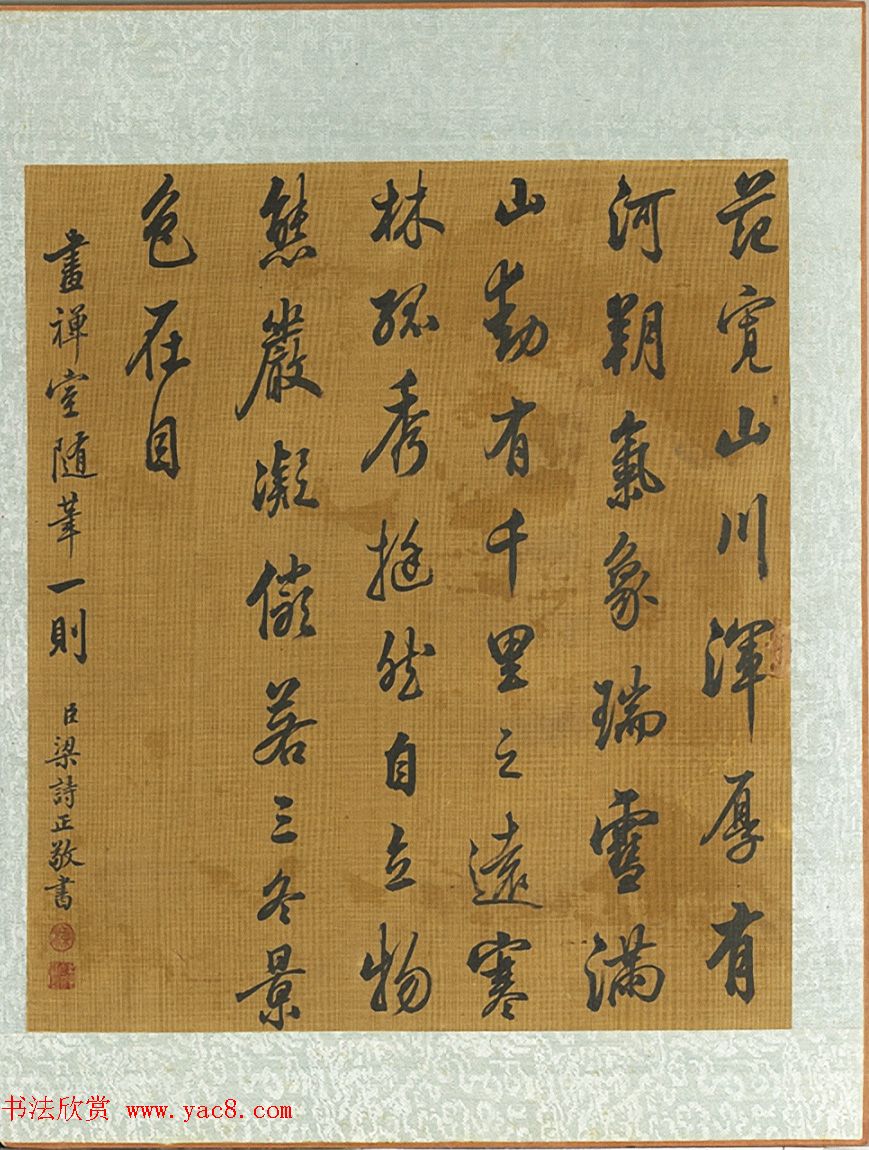 范寬山川渾厚有
河朔氣象瑞雪滿
山動有千里之遠寒
林孤秀挺然自立物
態嚴凝儼若三冬景
色在目
畫禪室隨筆一則
臣梁詩正敬書
书法欣赏 www.yac8.com